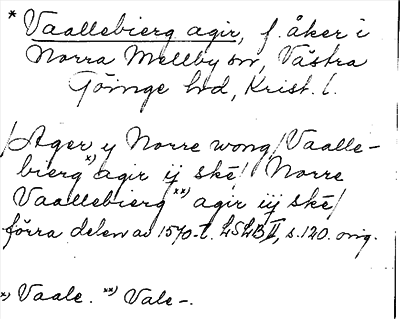 * Vaallebierg agir, f. åker i
Norra Mellby sn, Västra
Göinge hd, Krist. l.
/Ager y Norre wong/Vaalle-
bierg*) agir ij ske/ Norre
Vaallebierg**) agir iij ske/
förra delen av 1570-t. LSLB II, s. 120. orig.
*) Vaale. **) Vale-.